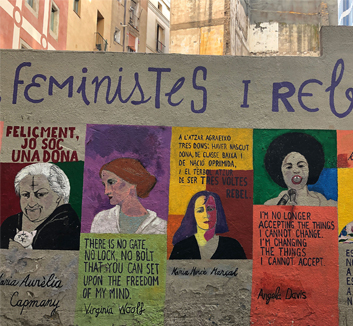 FEMINISTES I REB
FELIÇMENT,
JO SÓC
UNA DONA
Maria Aurèlia
Capmany
THERE IS NO GATE,
NO LOCK, NO BOLT
THAT YOU CAN SET
UPON THE FREEDOM
OF MY MIND.
Virginia Woolf
A L'ATZAR AGRAEIXO
TRES DONS: HAVER NASCUT
DONA, DE CLASSE BAIXA I
DE NACIÓ OPRIMIDA,
I EL TÈRBOL ATZUR
DE SER TRES VOLTES
REBEL.
Maria Mercè Marçal
I'M NO LONGER
ACCEPTING THE THINGS
I CANNOT CHANGE.
I'M CHANGING
THE THINGS
I CANNOT ACCEPT.
Angela Davis